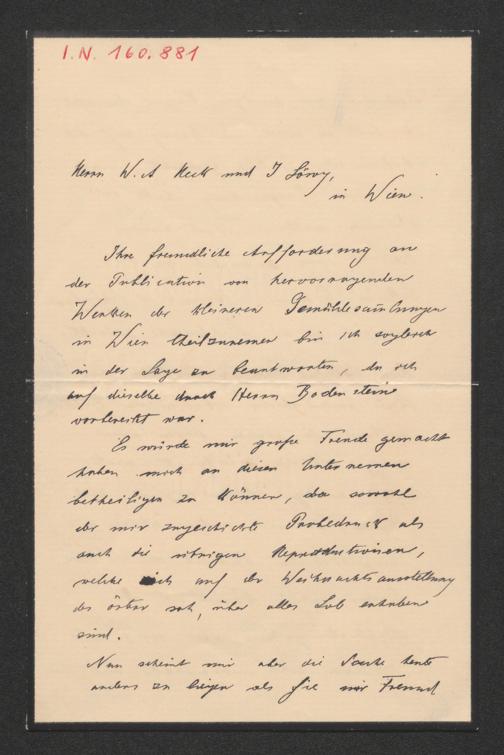 I.N. 160.881
Herrn W. A Heck und J Löwy,
in Wien.
Ihre freundliche Aufforderung an
der Publication von hervorragenden
Werken der kleineren Gemäldesammlungen
in Wien theilzunemen bin ich sogleich
in der Lage zu beantworten, da ich
auf dieselbe durch Herrn Bodenstein
vorbereitet war.
Es würde mir große Freude gemacht
haben mich an diesem Unternemen
betheiligen zu können, da sowohl
der mir zugeschickte Probedruck als
auch die übrigen Reproductionen,
welche ich auf der Weihnachtsausstellung
des öster sah, über alles Lob erhaben
sind.
Nun scheint mir aber die Sache heute
anders zu liegen als Sie mir Freund